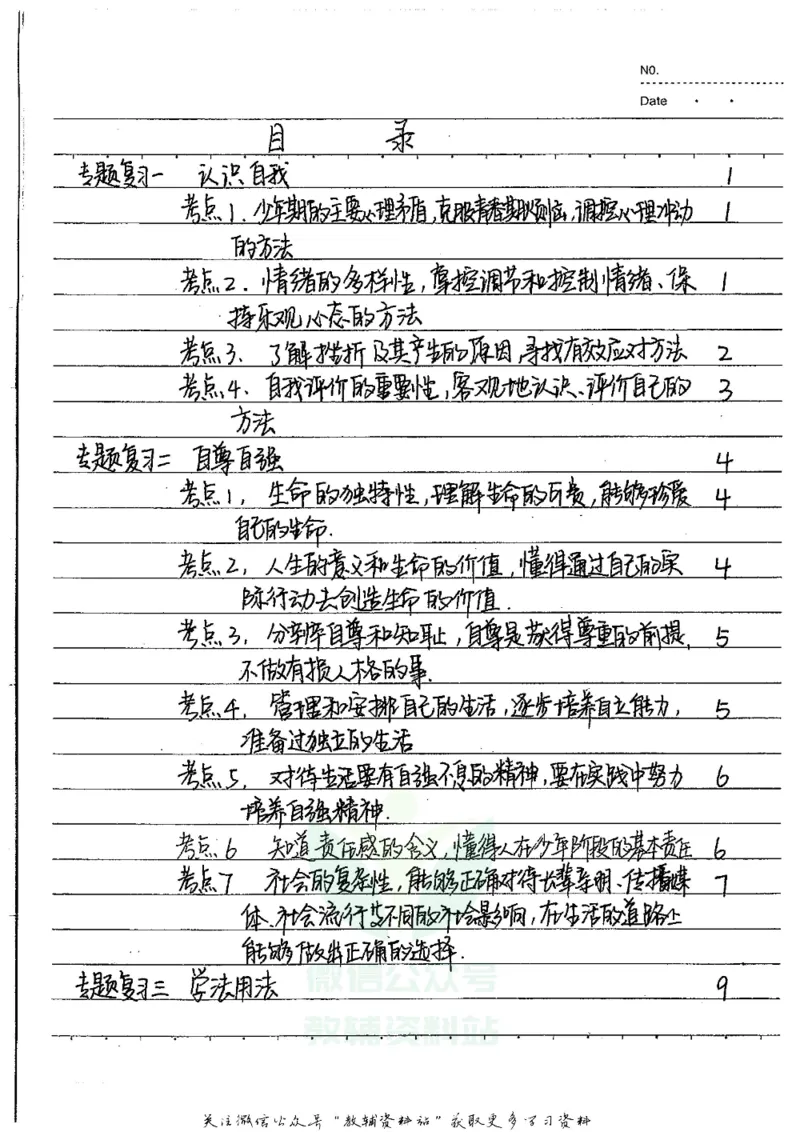 NO.
Date
目 录
专题复习一 认识自我 1
考点1.少年期的主要心理矛盾,克服青春期烦恼,调控心理冲动 1
的方法
考点2.情绪的多样性,掌控调节和控制情绪、保 1
持乐观心态的方法
考点3.了解挫折及其产生的原因,寻找有效应对方法 2
考点4.自我评价的重要性,客观地认识、评价自己的 3
方法
专题复习二 自尊自强 4
考点1,生命的独特性,理解生命的可贵,能够珍爱 4
自己的生命.
考点2,人生的意义和生命的价值,懂得通过自己的实 4
际行动去创造生命的价值.
考点3,分享自尊和知耻,自尊是获得尊重的前提, 5
不做有损人格的事.
考点4,管理和安排自己的生活,逐步培养自立能力, 5
准备过独立的生活
考点5,对待生活要有自强不息的精神,要在实践中努力 6
培养自强精神.
考点6 知道责任感的含义,懂得人在少年阶段的基本责任 6
考点7 社会的复杂性,能够正确对待长辈亲朋、传播媒 7
体、社会流行等不同的社会影响,在生活的道路上
能够做出正确的选择.
专题复习三 学法用法 9
微信公众号
教辅资料站
关注微信公众号"教辅资料站"获取更多学习资料